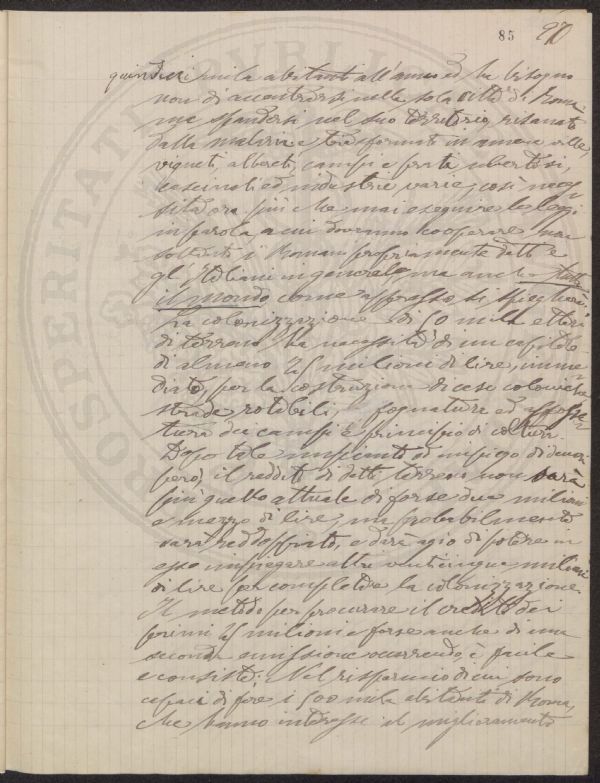 85 90
quindici mila abitanti all'anno ed ha bisogno
non di accentrarsi nella sola città di Roma
ma spandersi nel suo territorio, risanato
dalla malaria e trasformati in amene ville,
vigneti, albereti, campi e prati ubertosi,
cascinali ed industrie varie; così
ora più che mai eseguire le leggi
in parola, a cui dovranno cooperare non
soltanto i Romani propriamente detti e
gl'Italiani in generale, ma anche tutto
il mondo come appresso si spiegherà.
La colonizzazione di 50 mila ettari
di terreno ha necessità di un capitale
di almeno 25 milioni di lire, imme
diato, per la costruzione di case coloniche
strade rotabili, fognatura ed affossa
tura dei campi e principio di coltura.
Dopo tale impianto ed impiego di denari
però, il reddito di detto terreno non sarà
più quello attuale di forse due milioni
e mezzo di lire, ma probabilmente
sarà raddoppiato, e darà agio di potere in
esso impiegare altri venticinque milioni
di lire per completare la colonizzazione.
Il metodo per procurare il credito dei
primi 25 milioni e forse anche di una
seconda emissione occorrendo, è facile
e consiste: Nel risparmio di cui sono
capaci di fare i 500 mila abitanti di Roma,
che hanno interesse al miglioramento